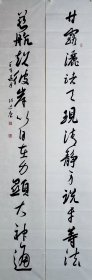 甘露灑諸天現清靜身說平等法
慈航超彼岸以自在力顯大神通